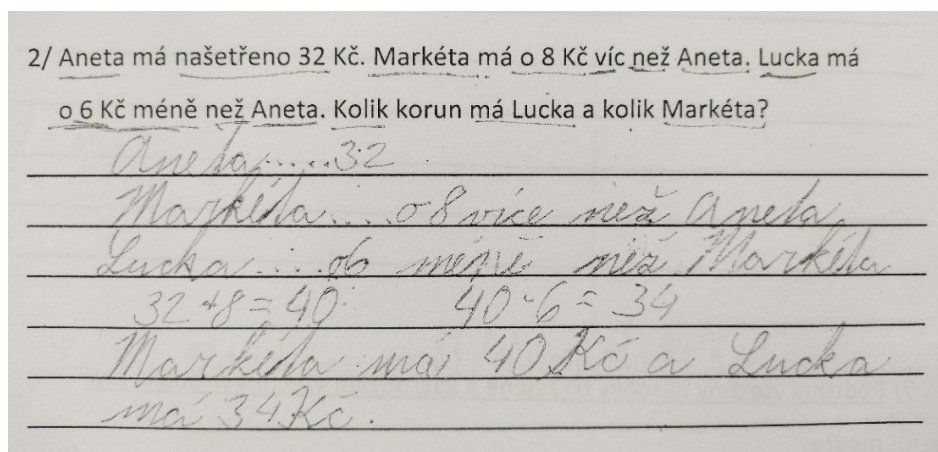 2/ Aneta má našetřeno 32 Kč. Markéta má o 8 Kč víc než Aneta. Lucka má
o 6 Kč méně než Aneta. Kolik korun má Lucka a kolik Markéta?
Aneta.....32
Markéta....o 8 více než Aneta.
Lucka.....o6 méně než Markéta
32+8=40 40-6=34
Markéta má 40 Kč a Lucka
má 34 Kč.